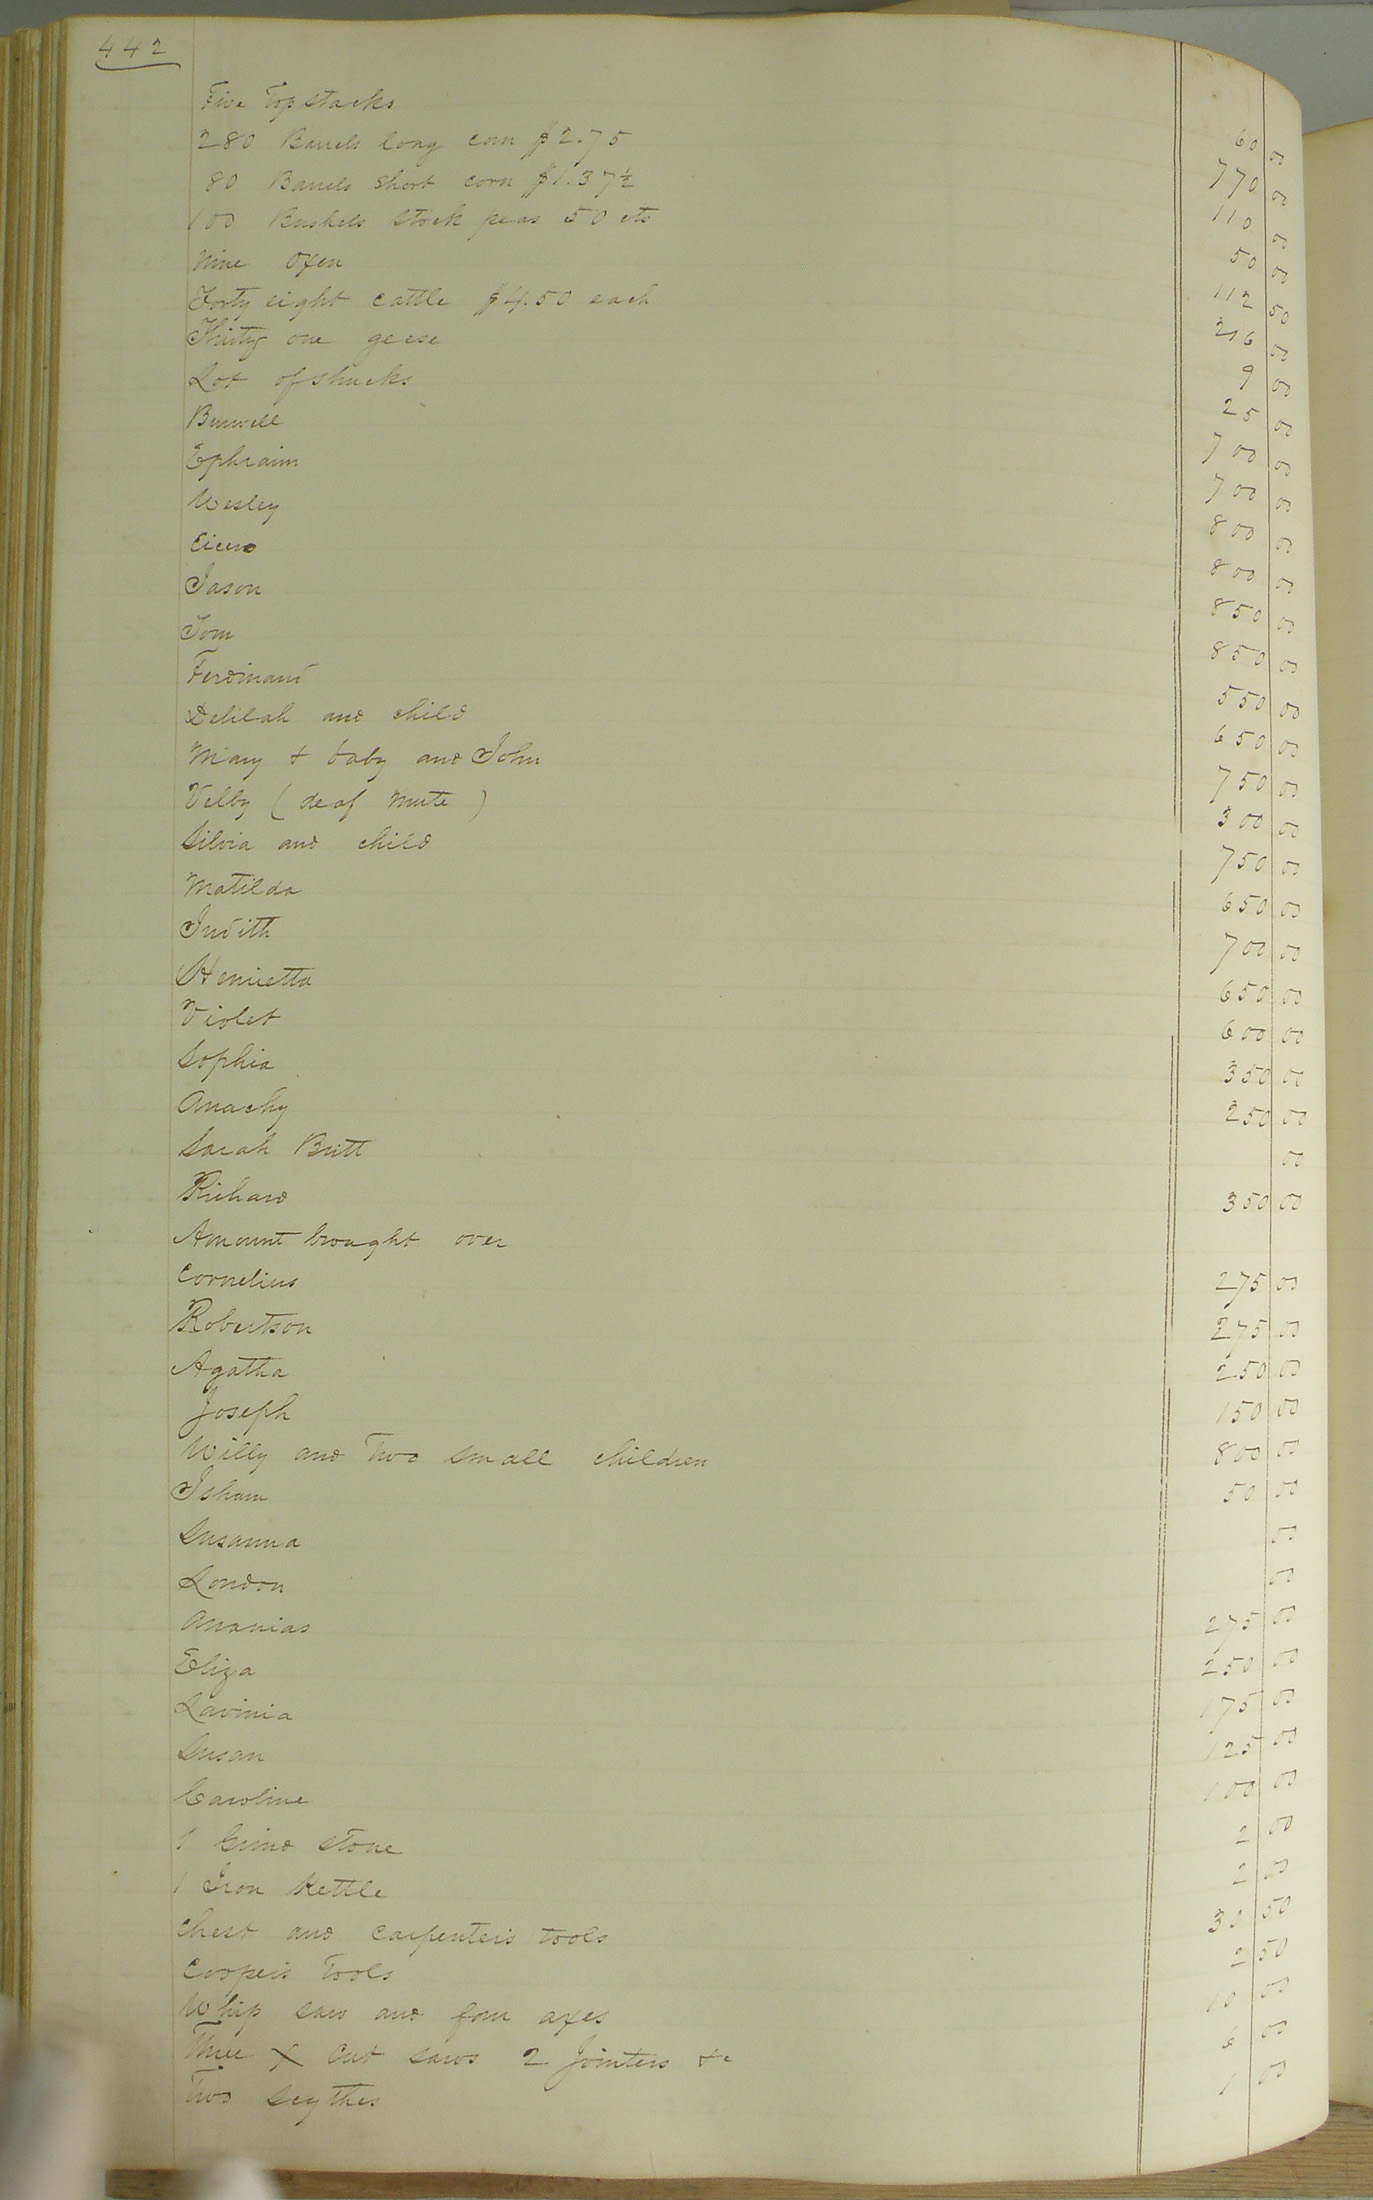 442
Five Top stacks 60 00
280 Barrels long corn $2.75 770 00
80 Barrels short corn $1.37½ 110 00
100 Bushels stock peas 50 cts 50 00
Nine oxen 112 50
Forty eight cattle $4.50 each 216 00
Thirty one geese 9 00
Lot of shucks 25 00
Burwell 700 00
Ephraim 700 00
Wesley 800 00
Cicero 800 00
Jason 850 00
Tom 850 00
Ferdinand 550 00
Delilah and child 650 00
Mary + baby and John 750 00
Velby (deaf mute) 300 00
Silvia and child 750 00
Matilda 650 00
Judith 700 00
Henrietta 650 00
Violet 600 00
Sophia 350 00
Anachy 250 00
Sarah Britt 00
Richard 350 00
Amount brought over
Cornelius 275 00
Robertson 275 00
Agatha 250 00
Joseph 150 00
Willy and Two small children 800 00
Isham 50 00
Susanna 00
London 00
Ananias 275 00
Eliza 250 00
Lavinia 175 00
Susan 125 00
Caroline 100 00
1 Grind stone 2 00
1 Iron Kettle 2 00
Chest and Carpenters tools 30 50
Coopers Tools 2 50
Whip saw and four axes 10 00
Three X Cut saws 2 Jointers &c 6 00
Two Scythes 1 00